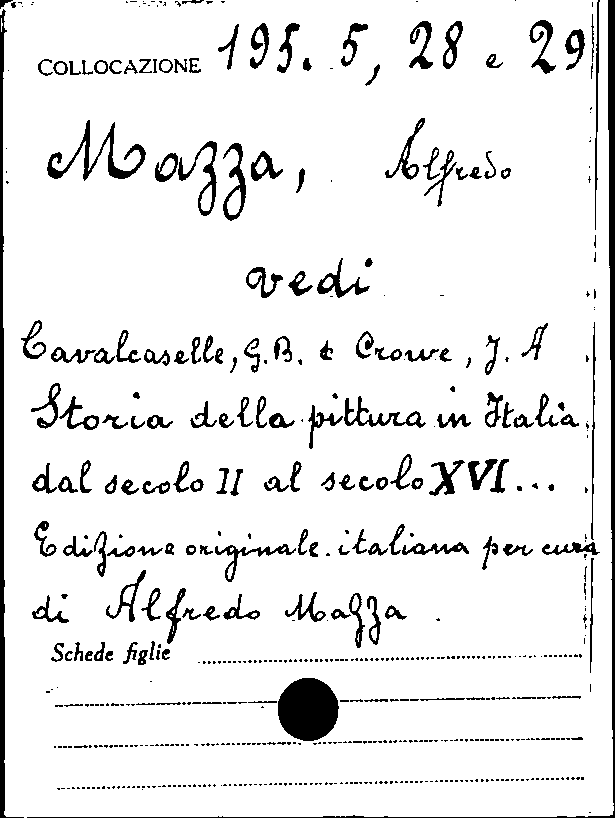 COLLOCAZIONE 195. 5, 28 e 29
Mazza, Alfredo
vedi
Cavalcaselle, G.B. & Crowe, J. A
Storia della pittura in Italia
dal secolo II al secolo XVI...
Edizione originale italiana per cura
di Alfredo Mazza.
Schede figlie